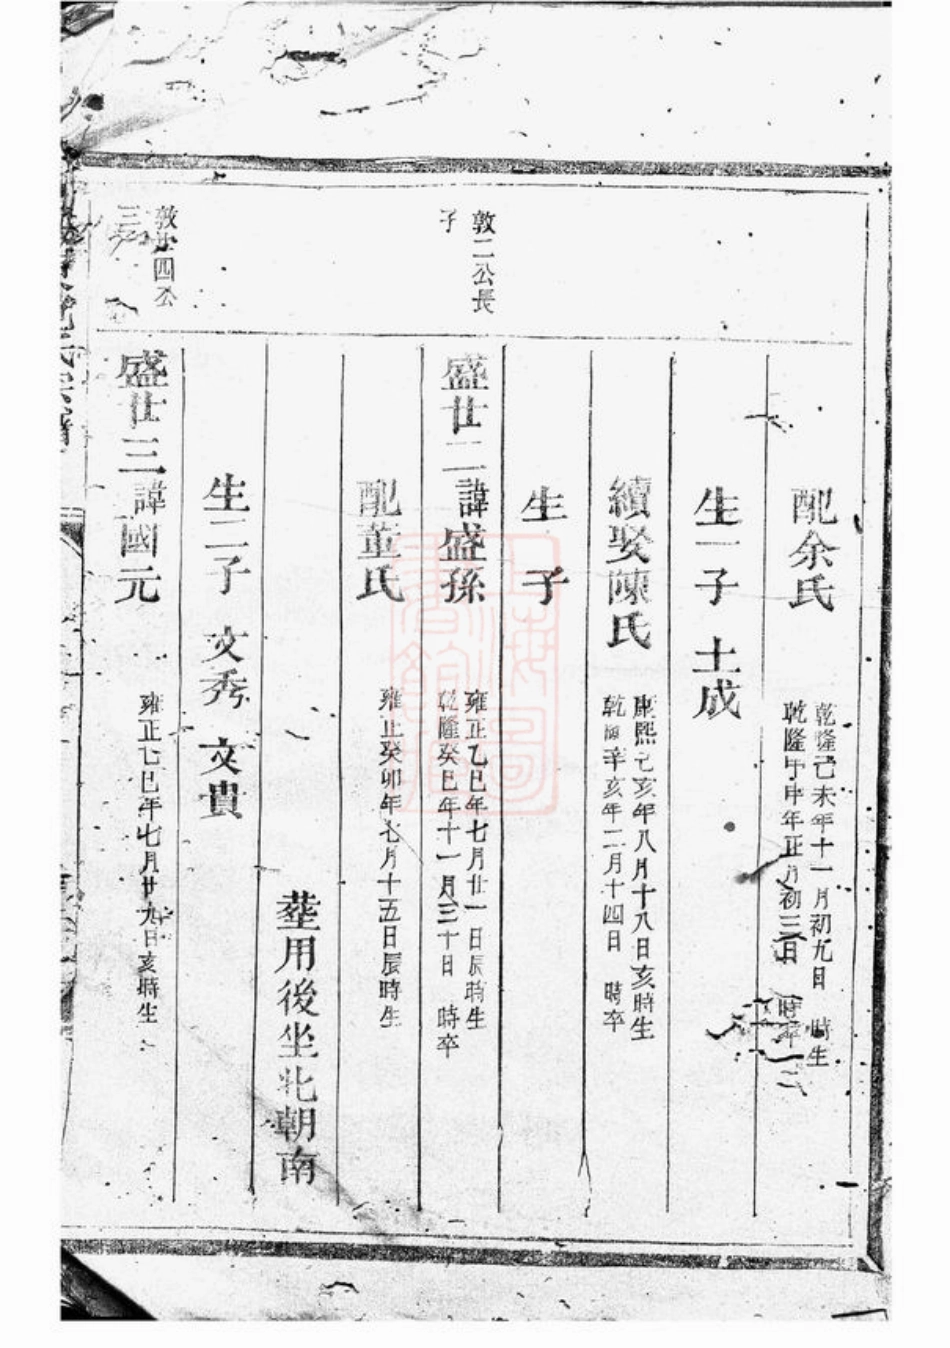 配余氏
乾隆己未年十一月初九日 時生
乾隆甲申年正月初三日 時卒
生一子 土成
續娶陳氏
康熙己亥年八月十八日亥時生
乾隆辛亥年二月十四日 時卒
生 子
敦二公長
子
盛廿二諱盛孫
雍正乙巳年七月廿一日辰時生
乾隆癸巳年十一月三十日 時卒
配董氏
雍正癸卯年七月十五日辰時生
塟用後坐北朝南
生二子 文秀 文貴
敦廿四公
盛廿三諱國元
雍正七巳年七月廿九日亥時生